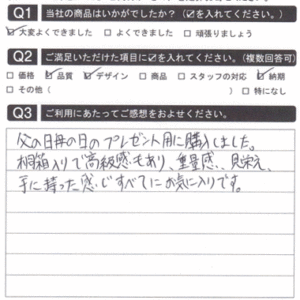 Q1 当社の商品はいかがでしたか？（☑を入れてください。）
☑大変よくできました □よくできました □頑張りましょう
Q2 ご満足いただけた項目に☑を入れてください。（複数回答可）
□価格 ☑品質 ☑デザイン □商品 □スタッフの対応 ☑納期
□その他（ ）□特になし
Q3 ご利用にあたってご感想をおよせください。
父の日母の日のプレゼント用に購入しました。
桐箱入りで高級感もあり、重量感、見栄え、
手に持った感じすべてにお気に入りです。